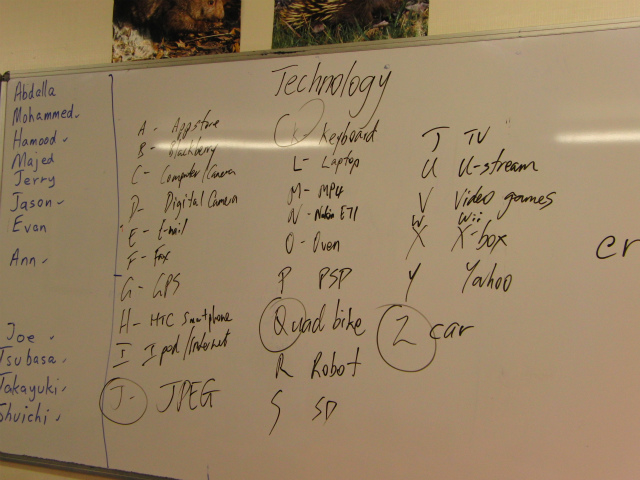 Technology
Abdella
Mohammed
Hamood
Majed
Jerry
Jason
Evan
Ann
Joe
Tsubasa
Takayuki
Shuichi
A - Appstore
B - Blackberry
C - Computer/Camera
D - Digital Camera
E - E-mail
F - Fax
G - GPS
H - HTC Smartphone
I Ipod/Internet
J - JPEG
K - Keyboard
L - Laptop
M - MP4
N - Nokia E71
O - Oven
P PSP
Quad bike
R Robot
S SD
T TV
U U-stream
V Video games
W Wii
X X-box
Y Yahoo
Z car
er